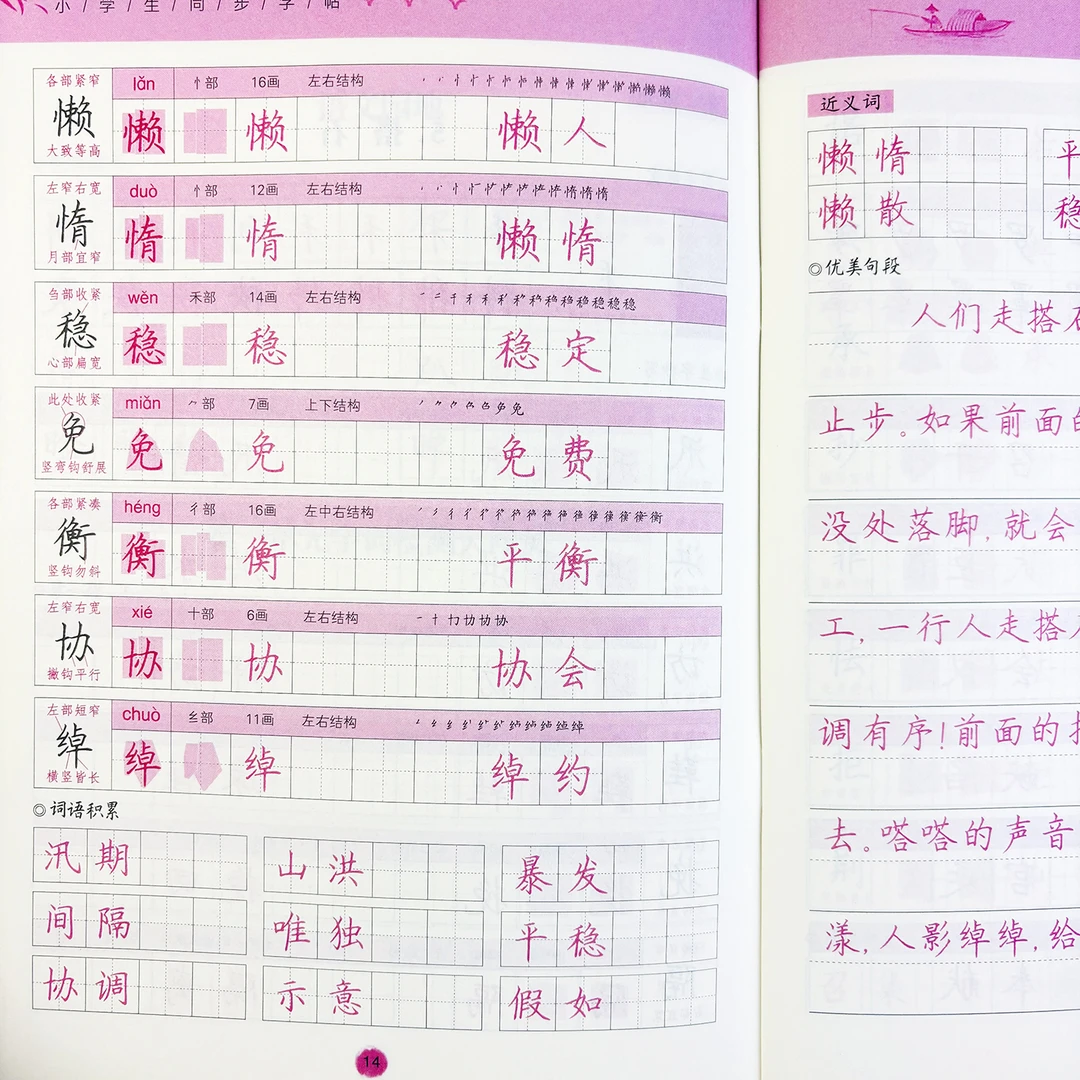 小/学/生/同/步/字/帖
各部紧窄
懒
大致等高
lǎn 忄部 16画 左右结构
懒 懒 懒人
左窄右宽
惰
月部宜窄
duò 忄部 12画 左右结构
惰 惰 懒惰
刍部收紧
稳
心部扁宽
wěn 禾部 14画 左右结构
稳 稳 稳定
此处收紧
免
竖弯钩舒展
miǎn ⺈部 7画 上下结构
免 免 免费
各部紧凑
衡
竖钩勿斜
héng 彳部 16画 左中右结构
衡 衡 平衡
左窄右宽
协
撇钩平行
xié 十部 6画 左右结构
协 协 协会
左部短窄
绰
横竖皆长
chuò 纟部 11画 左右结构
绰 绰 绰约
◎词语积累
汛期 山洪 暴发
间隔 唯独 平稳
协调 示意 假如
14
近义词
懒惰 平
懒散 稳
◎优美句段
人们走搭石
止步。如果前面的
没处落脚,就会
工,一行人走搭石
调有序!前面的
去。嗒嗒的声音
漾,人影绰绰,给